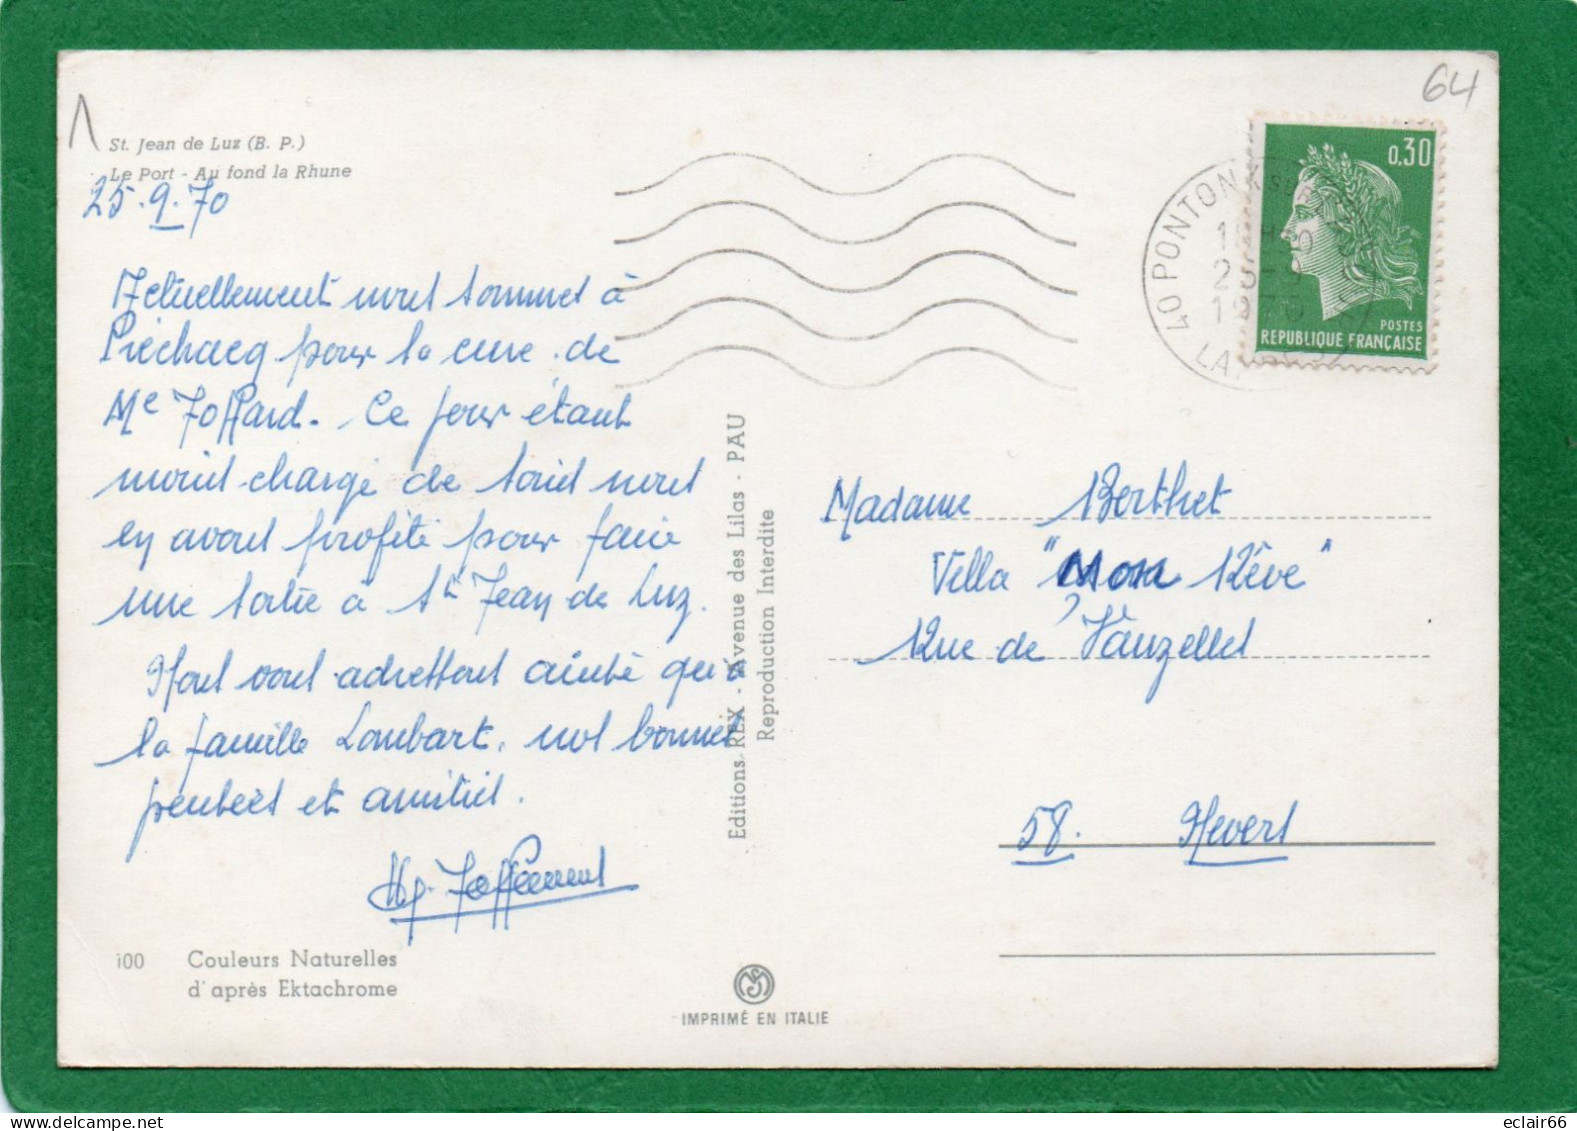 64
St. Jean de Luz (B. P.)
Le Port - Au fond la Rhune
25.9.70
Actuellement nous sommes à
Préchacq pour la cure de
Me Joffard. Ce jour étant
moins chargé de soins nous
en avons profité pour faire
une sortie à St Jean de Luz.
Nous vous adressons ainsi qu'à
la famille Lambart, nos bonnes
pensées et amitiés.
100 Couleurs Naturelles
d'après Ektachrome
Editions REX - Avenue des Lilas - PAU
Reproduction Interdite
IMPRIMÉ EN ITALIE
0,30
POSTES
REPUBLIQUE FRANÇAISE
40 PONTONX
1970
Madame Berthet
Villa "Mon Rêve"
Rue de Vauzelles
58. Nevers
eclair66